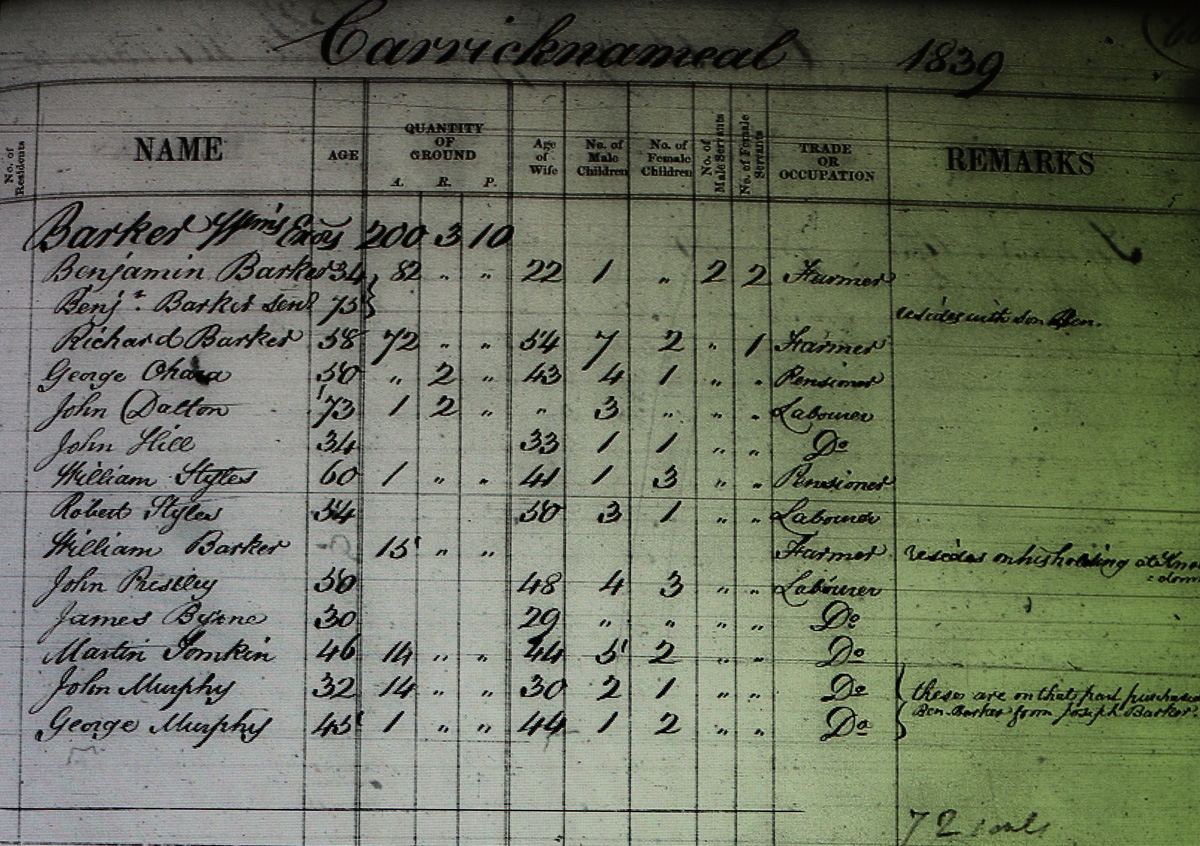 Carricknameal 1839
No. of Residents NAME AGE QUANTITY OF GROUND A. R. P. Age of Wife No. of Male Children No. of Female Children No. of Male Servants No. of Female Servants TRADE OR OCCUPATION REMARKS
Barker Wm's Exors 200 3 10
Benjamin Barker 34 82 " " 22 1 " 2 2 Farmer
Benjn. Barker senr. 75 resides with son Ben.
Richard Barker 58 72 " " 54 7 2 " 1 Farmer
George Ohara 50 " 2 " 43 4 1 " " Pensioner
John Dalton 73 1 2 " " 3 " " " Labourer
John Hill 34 33 1 1 " " Do
William Styles 60 1 " " 41 1 3 " " Pensioner
Robert Styles 54 50 3 1 " " Labourer
William Barker 15 " " Farmer resides on his holding at
John 50 48 4 3 " " Labourer
James Byrne 30 29 " " " " Do
Martin Tomkin 46 14 " " 44 5 2 " " Do
John Murphy 32 14 " " 30 2 1 " " Do these are on that part
George Murphy 45 1 " " 44 1 2 " " Do Ben. Barker from Joseph Barker
72 souls